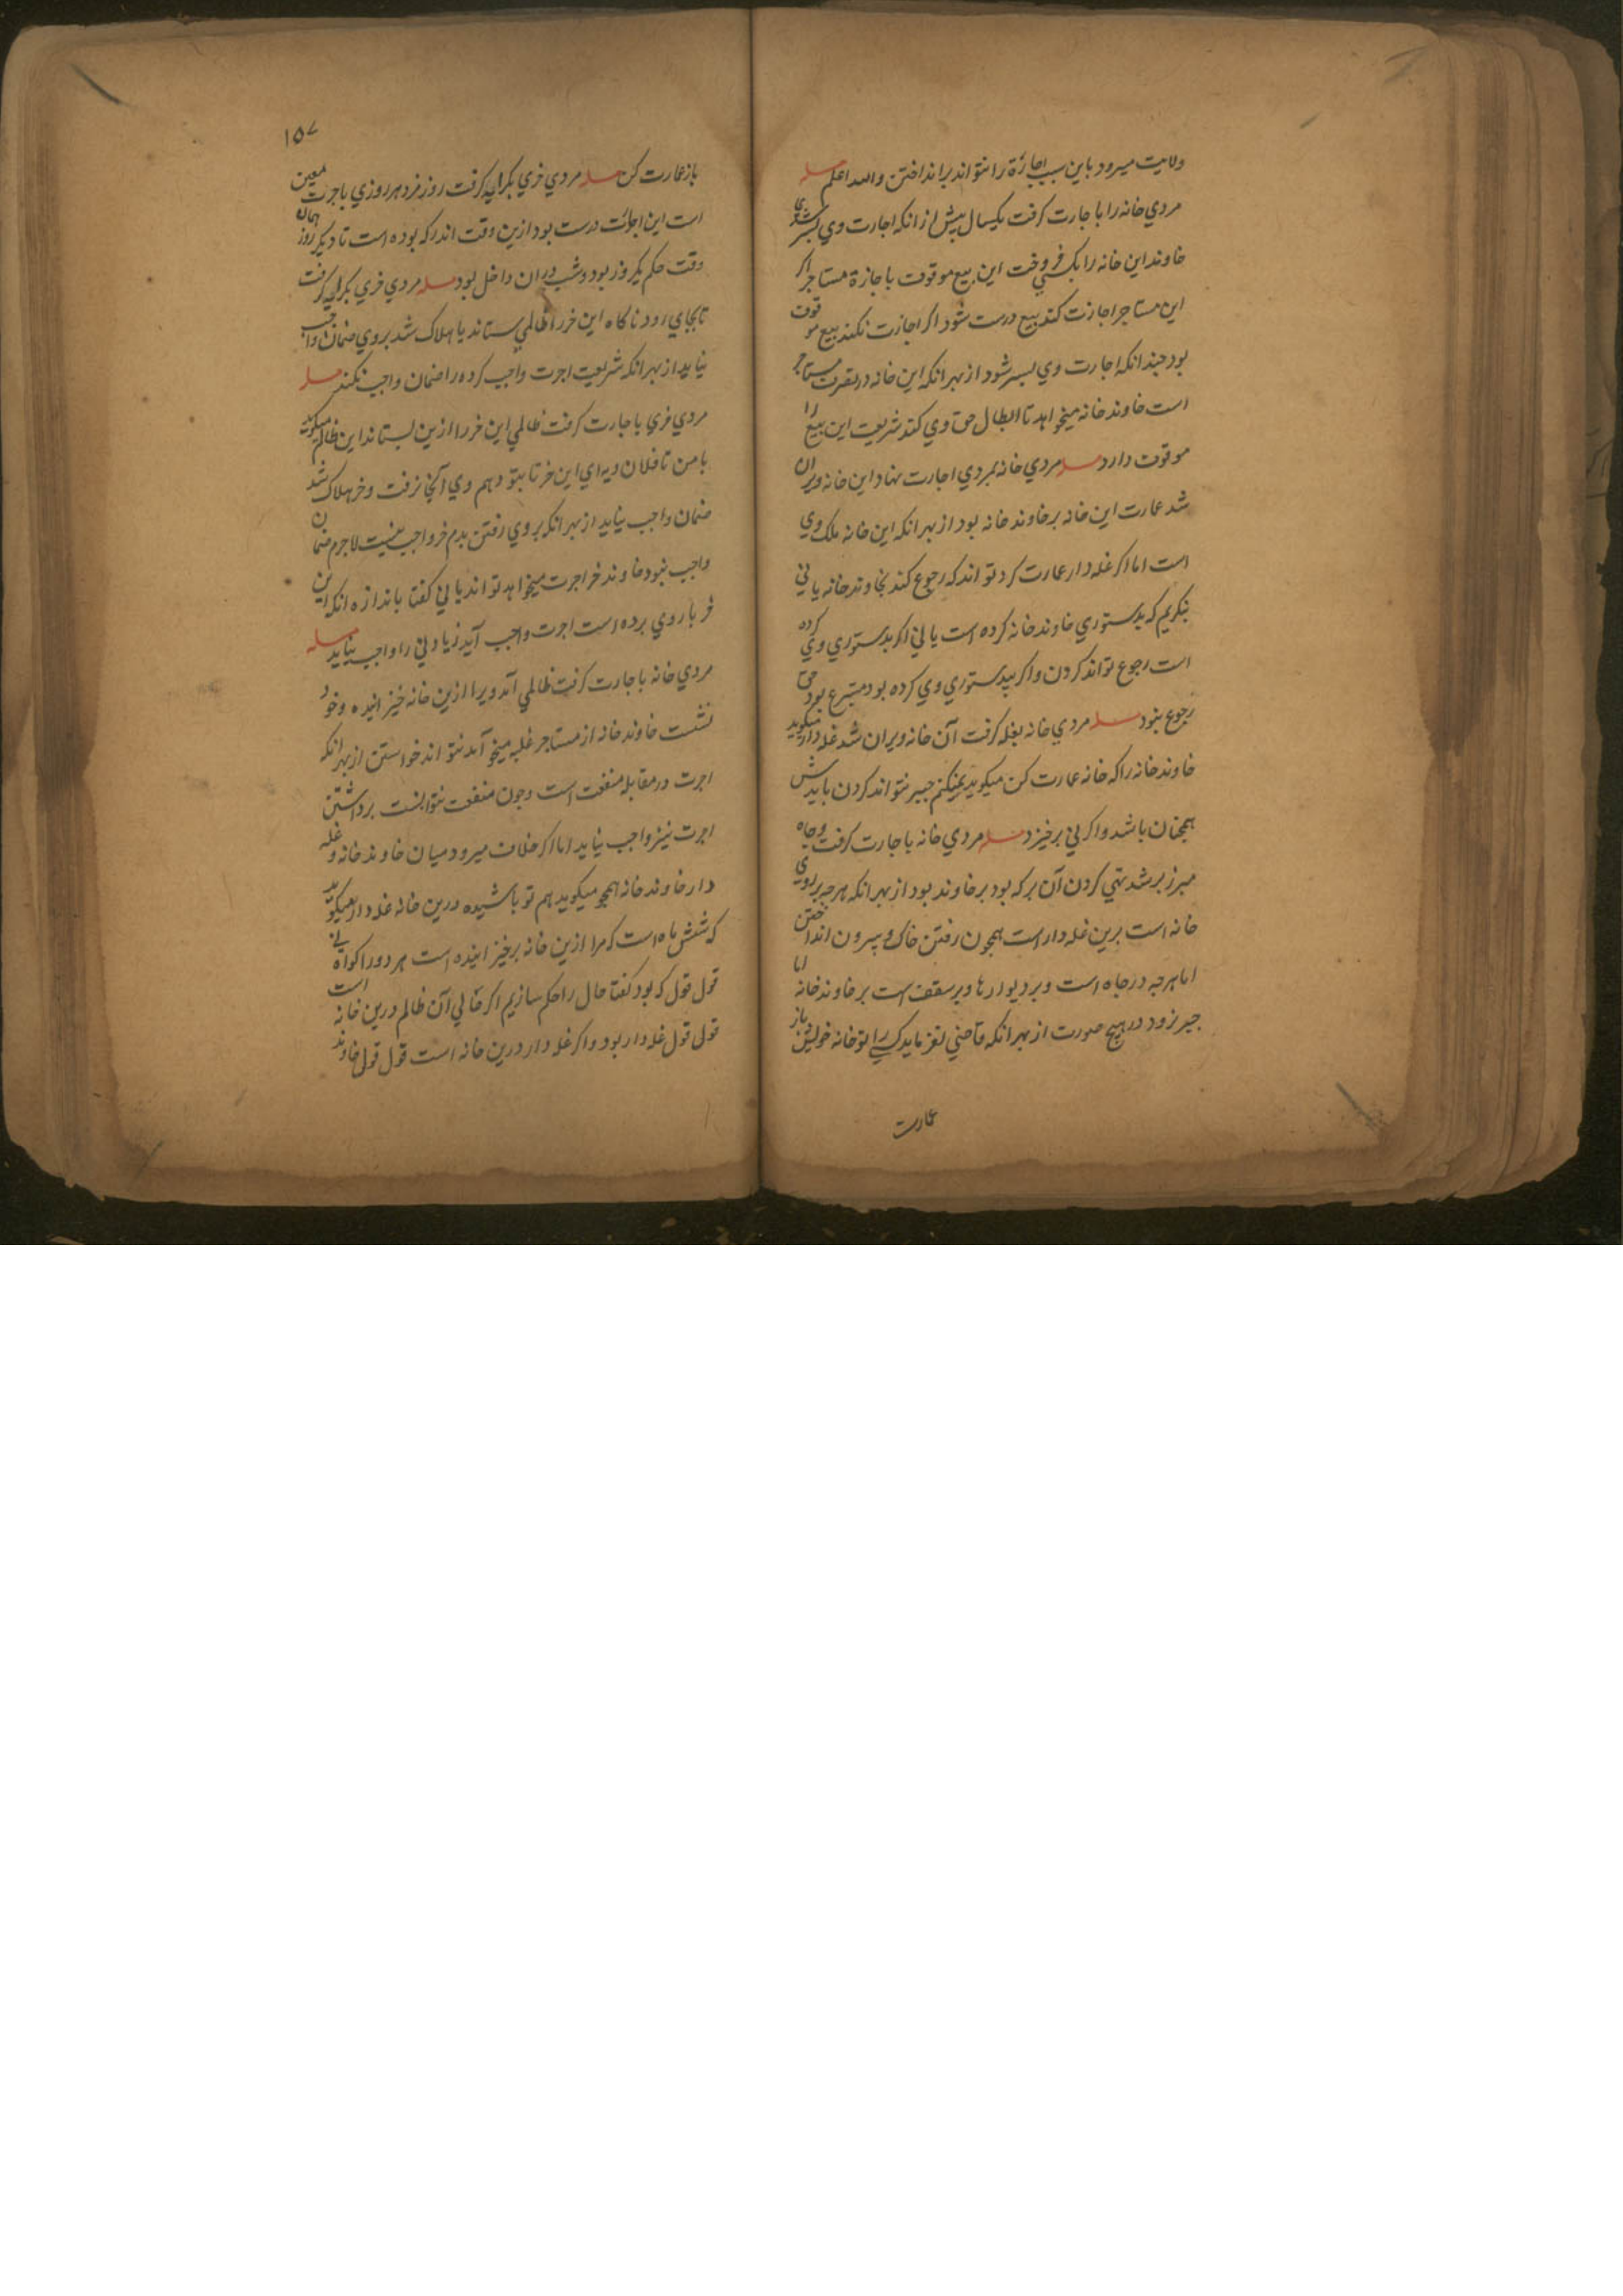 ولایت میرود باین سبب اجازة را نتواند برانداختن والله اعلم مسله
مردي خانه را باجارت کرفت یکسال پیش از انکه اجارت وي بسر شدي
خاوند این خانه را بکسي فروخت این بیع موقوف باجازة مستاجر اکر
این مستاجر اجازت کند بیع درست شود اکر اجازت نکند بیع موقوف
بود چندانکه اجارت وي بسر شود از بهر انکه این خانه در تصرف مستاجر
است خاوند خانه میخواهد تا ابطال حق وي کند شریعت این بیع را
موقوف دارد مسله مردي خانه بمردي اجارت نهاد این خانه ویران
شد عمارت این خانه بر خاوند خانه بود از بهر انکه این خانه ملک وي
است اما اکر غله دار عمارت کرد تواند که رجوع کند بخاوند خانه یا ني
بنکریم که بدستوري خاوند خانه کرده است یا ني اکر بدستوري وي کرده
است رجوع تواند کردن و اکر بیدستوري وي کرده بود متبرع بود حق
رجوع نبود مسله مردي خانه بغله کرفت آن خانه ویران شد غله دار میکوید
خاوند خانه را که خانه عمارت کن میکوید نمیکنم جبر نتواند کردن بایدش
همچنان باشد و اکر ني برخیزد مسله مردي خانه باجارت کرفت و چاه
مبرز بر شد تهي کردن آن بر که بود بر خاوند بود از بهر انکه هرچه بر روي
خانه است برین غله دار است همچون رفتن خاک و بیرون انداختن
اما هرچه در چاه است و بر دیوارها و بر سقف است بر خاوند خانه اما
جبر نرود در هیچ صورت از بهر انکه قاضي نفرماید کسي را تو خانه خویش باز
عمارت
١٥٧
باز عمارت کن مسله مردي خري بکرایه کرفت روز مزد هر روزي باجرت معین
است این اجارت درست بود ازین وقت اندر که بوده است تا دیکر روز همان
وقت حکم یکروز بود و شب دران داخل بود مسله مردي خري بکرایه کرفت
تا بجاي رود ناکاه این خر را ظالمي بستاند یا هلاک شد بر وي ضمان واجب
نیاید از بهر انکه شریعت اجرت واجب کرده را ضمان واجب نکند مسله
مردي خري باجارت کرفت ظالمي این خر را ازین بستاند این ظالم میکوید
با من تا فلان دیه اي این خر تا بتو دهم وي آنجا نرفت و خر هلاک شد
ضمان واجب نیاید از بهر انکه بر وي رفتن بدم خر واجب نیست لاجرم ضمان
واجب نبود خاوند خر اجرت میخواهد تواند یا ني کفتا باندازه انکه این
خر بار وي برده است اجرت واجب آید زیادتي را واجب نیاید مسله
مردي خانه باجارت کرفت ظالمي آمد ویرا ازین خانه خیزانیده و خود
نشست خاوند خانه از مستاجر غله میخواهد نتواند خواستن از بهر انکه
اجرت در مقابله منفعت است و چون منفعت نتوانست برداشتن
اجرت نیز واجب نیاید اما اکر خلاف میرود میان خاوند خانه و غله
دار خاوند خانه همچو میکوید هم تو باشیده درین خانه غله دار میکوید
که شش ماه است که مرا ازین خانه برخیزانیده است هر دو را کواه ني
قول قول که بود کفتا حال را حکم سازیم اکر حالي آن ظالم درین خانه است
قول قول غله دار بود و اکر غله دار درین خانه است قول قول خاوند